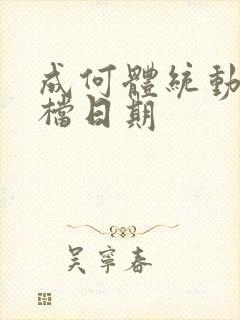 成何體統動
檔日期
吴寧春